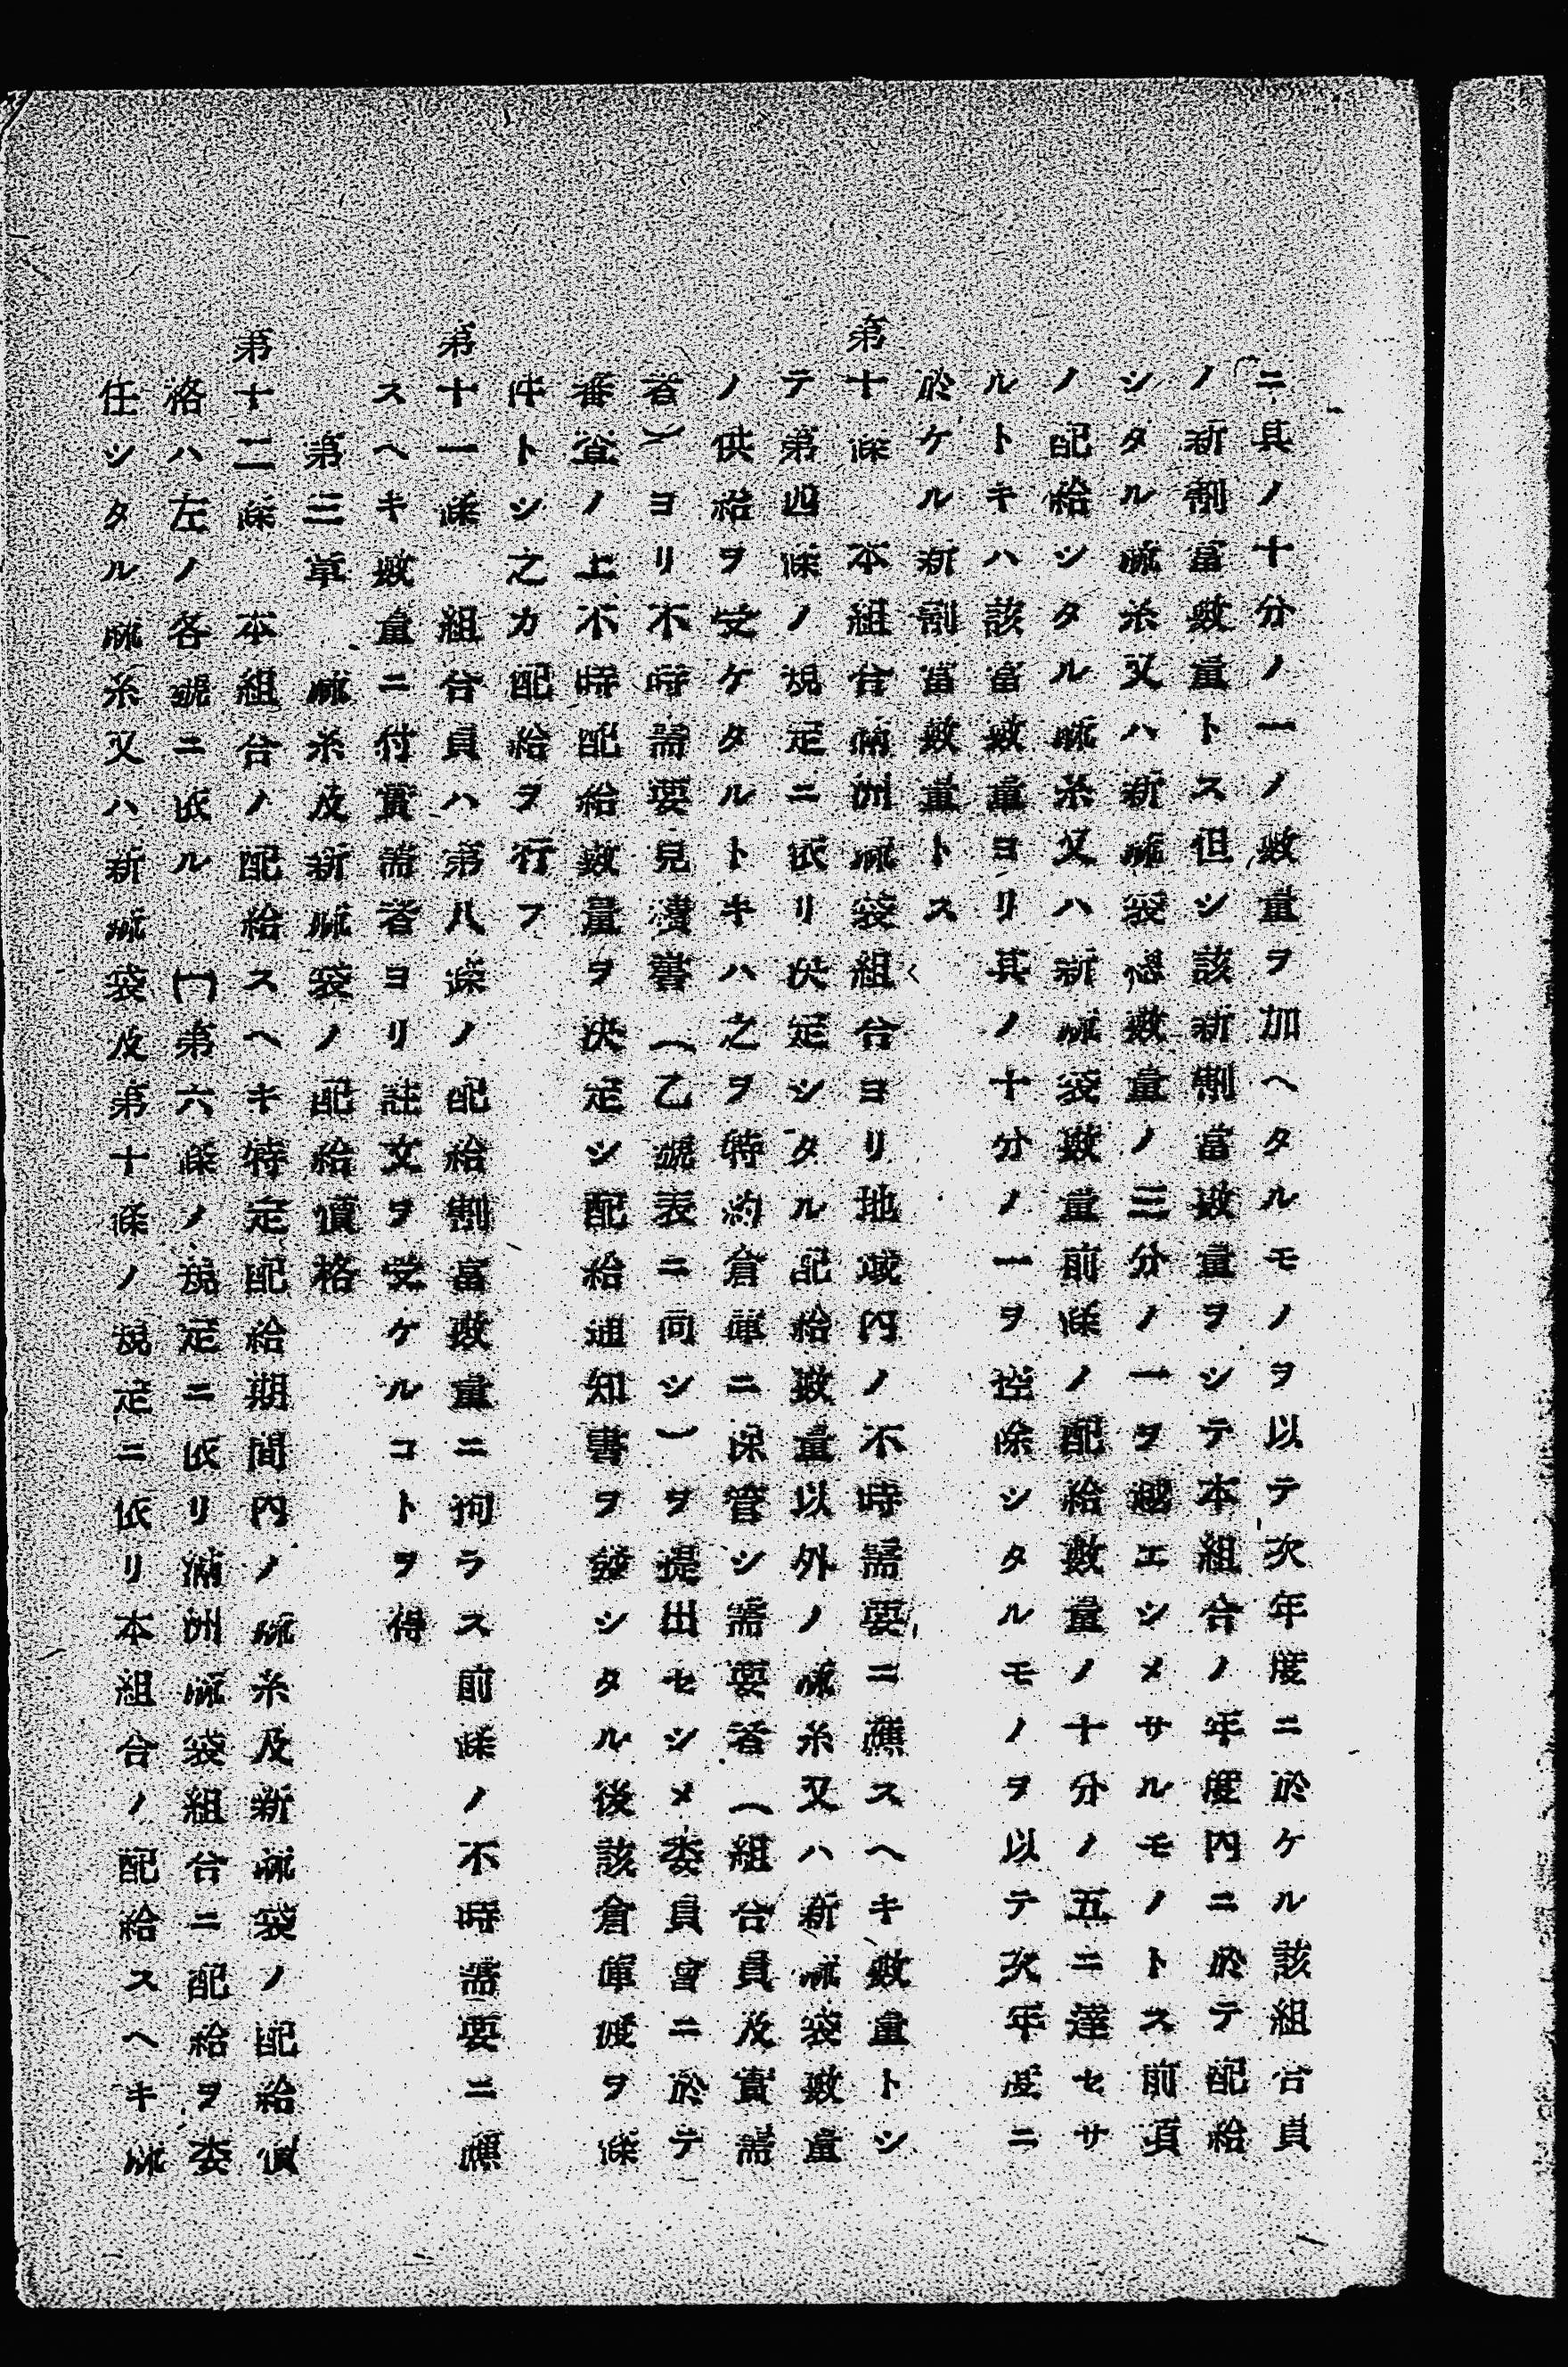 ニ其ノ十分ノ一ノ數量ヲ加ヘタルモノヲ以テ次年度ニ於ケル該組合員
ノ新割當數量トス但シ該新割當數量ヲシテ本組合ノ年度內ニ於テ配給
シタル麻糸又ハ新麻袋總數量ノ三分ノ一ヲ越エシメサルモノトス前項
ノ配給シタル麻糸又ハ新麻袋數量前條ノ配給數量ノ十分ノ五ニ達セサ
ルトキハ該當數量ヨリ其ノ十分ノ一ヲ控除シタルモノヲ以テ次年度ニ
於ケル新割當數量トス
第十條 本組合滿洲麻袋組合ヨリ地域內ノ不時需要ニ應スヘキ數量トシ
テ第四條ノ規定ニ依リ決定シタル配給數量以外ノ麻糸又ハ新麻袋數量
ノ供給ヲ受ケタルトキハ之ヲ特約倉庫ニ保管シ需要者（組合員及實需
者）ヨリ不時需要見積書（乙號表ニ同シ）ヲ提出セシメ委員會ニ於テ
審査ノ上不時配給數量ヲ決定シ配給通知書ヲ發シタル後該倉庫渡ヲ條
件トシ之カ配給ヲ行フ
第十一條 組合員ハ第八條ノ配給割當數量ニ拘ラス前條ノ不時需要ニ應
スヘキ數量ニ付實需者ヨリ註文ヲ受ケルコトヲ得
第三章 麻糸及新麻袋ノ配給價格
第十二條 本組合ノ配給スヘキ特定配給期間內ノ麻糸及新麻袋ノ配給價
格ハ左ノ各號ニ依ル (一)第六條ノ規定ニ依リ滿洲麻袋組合ニ配給ヲ委
任シタル麻糸又ハ新麻袋及第十條ノ規定ニ依リ本組合ノ配給スヘキ麻